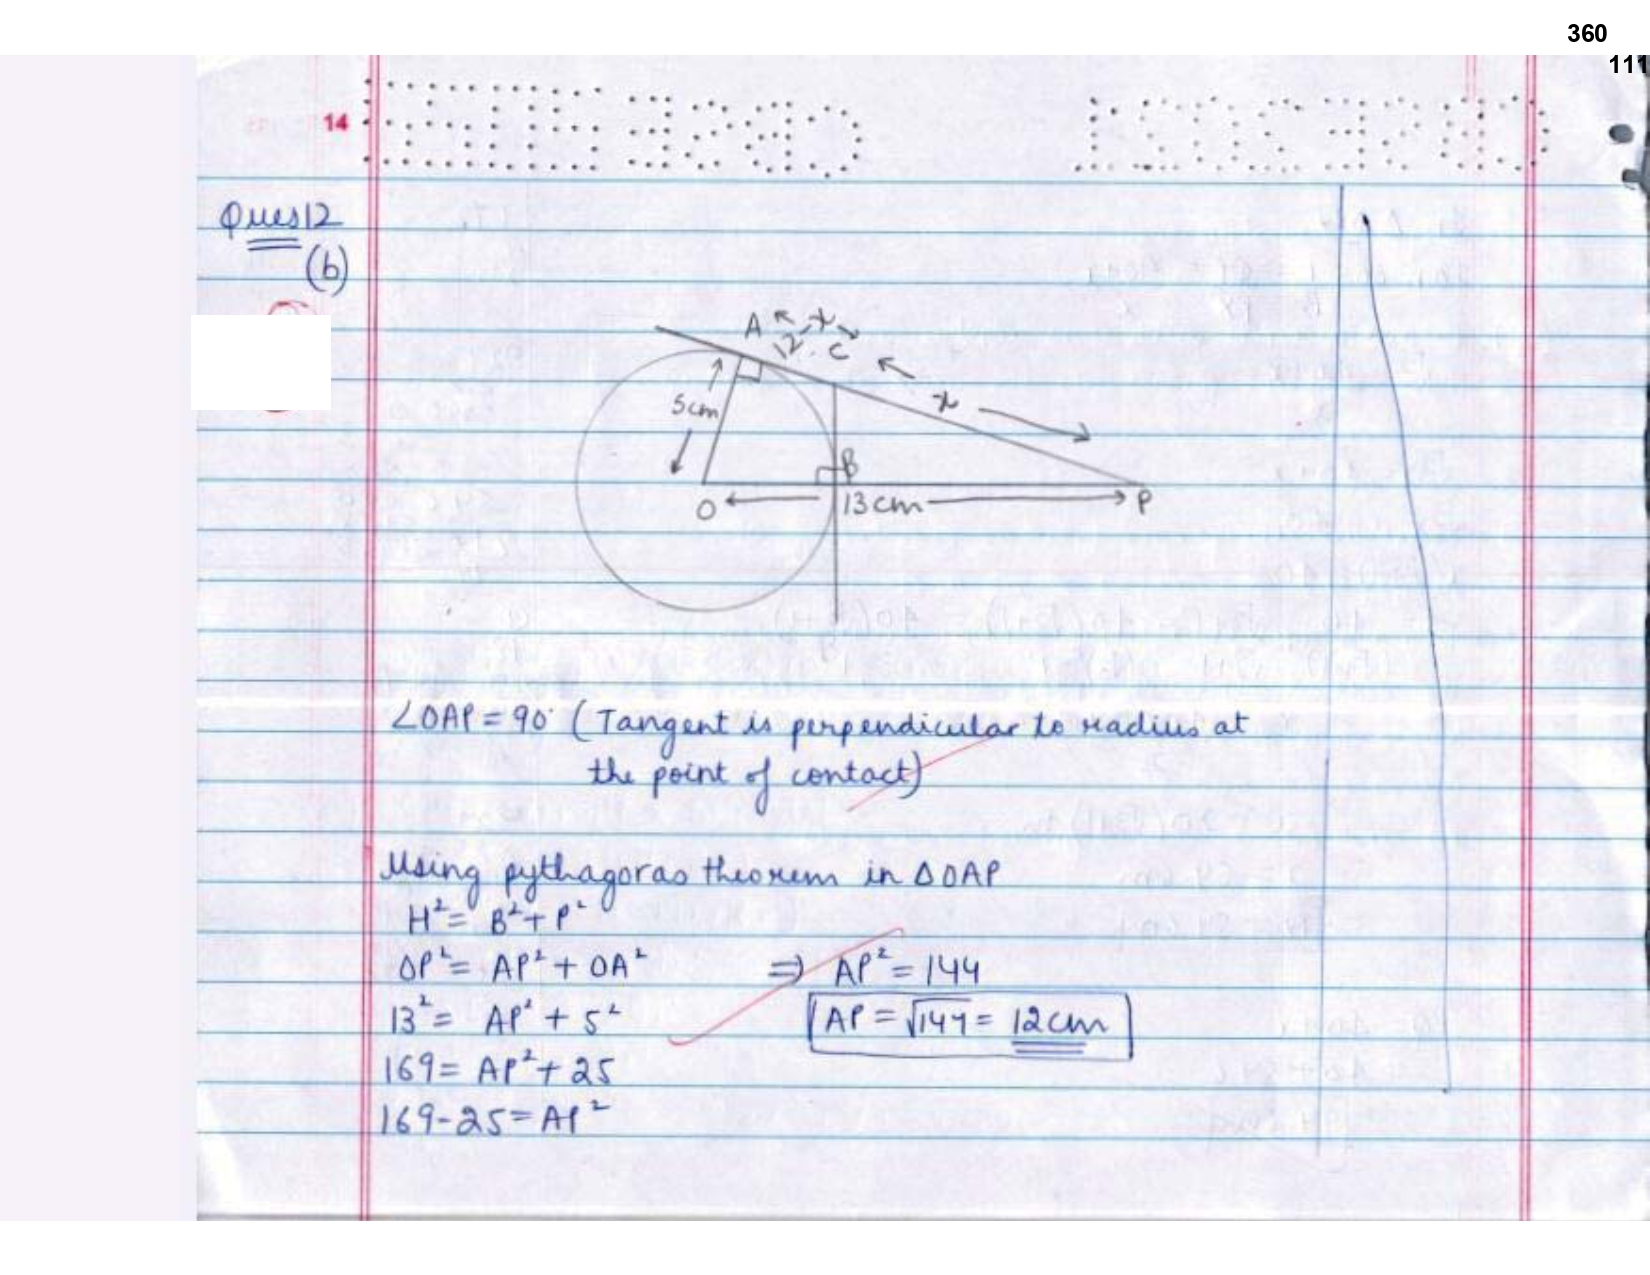 360
111
14
Ques12
(b)
A
12-x
C
x
5cm
B
O
13cm
P
∠OAP = 90° (Tangent is perpendicular to radius at
the point of contact)
Using pythagoras theorem in ΔOAP
H² = B² + P²
OP² = AP² + OA²
⇒ AP² = 144
13² = AP² + 5²
AP = √144 = 12cm
169 = AP² + 25
169-25 = AP²